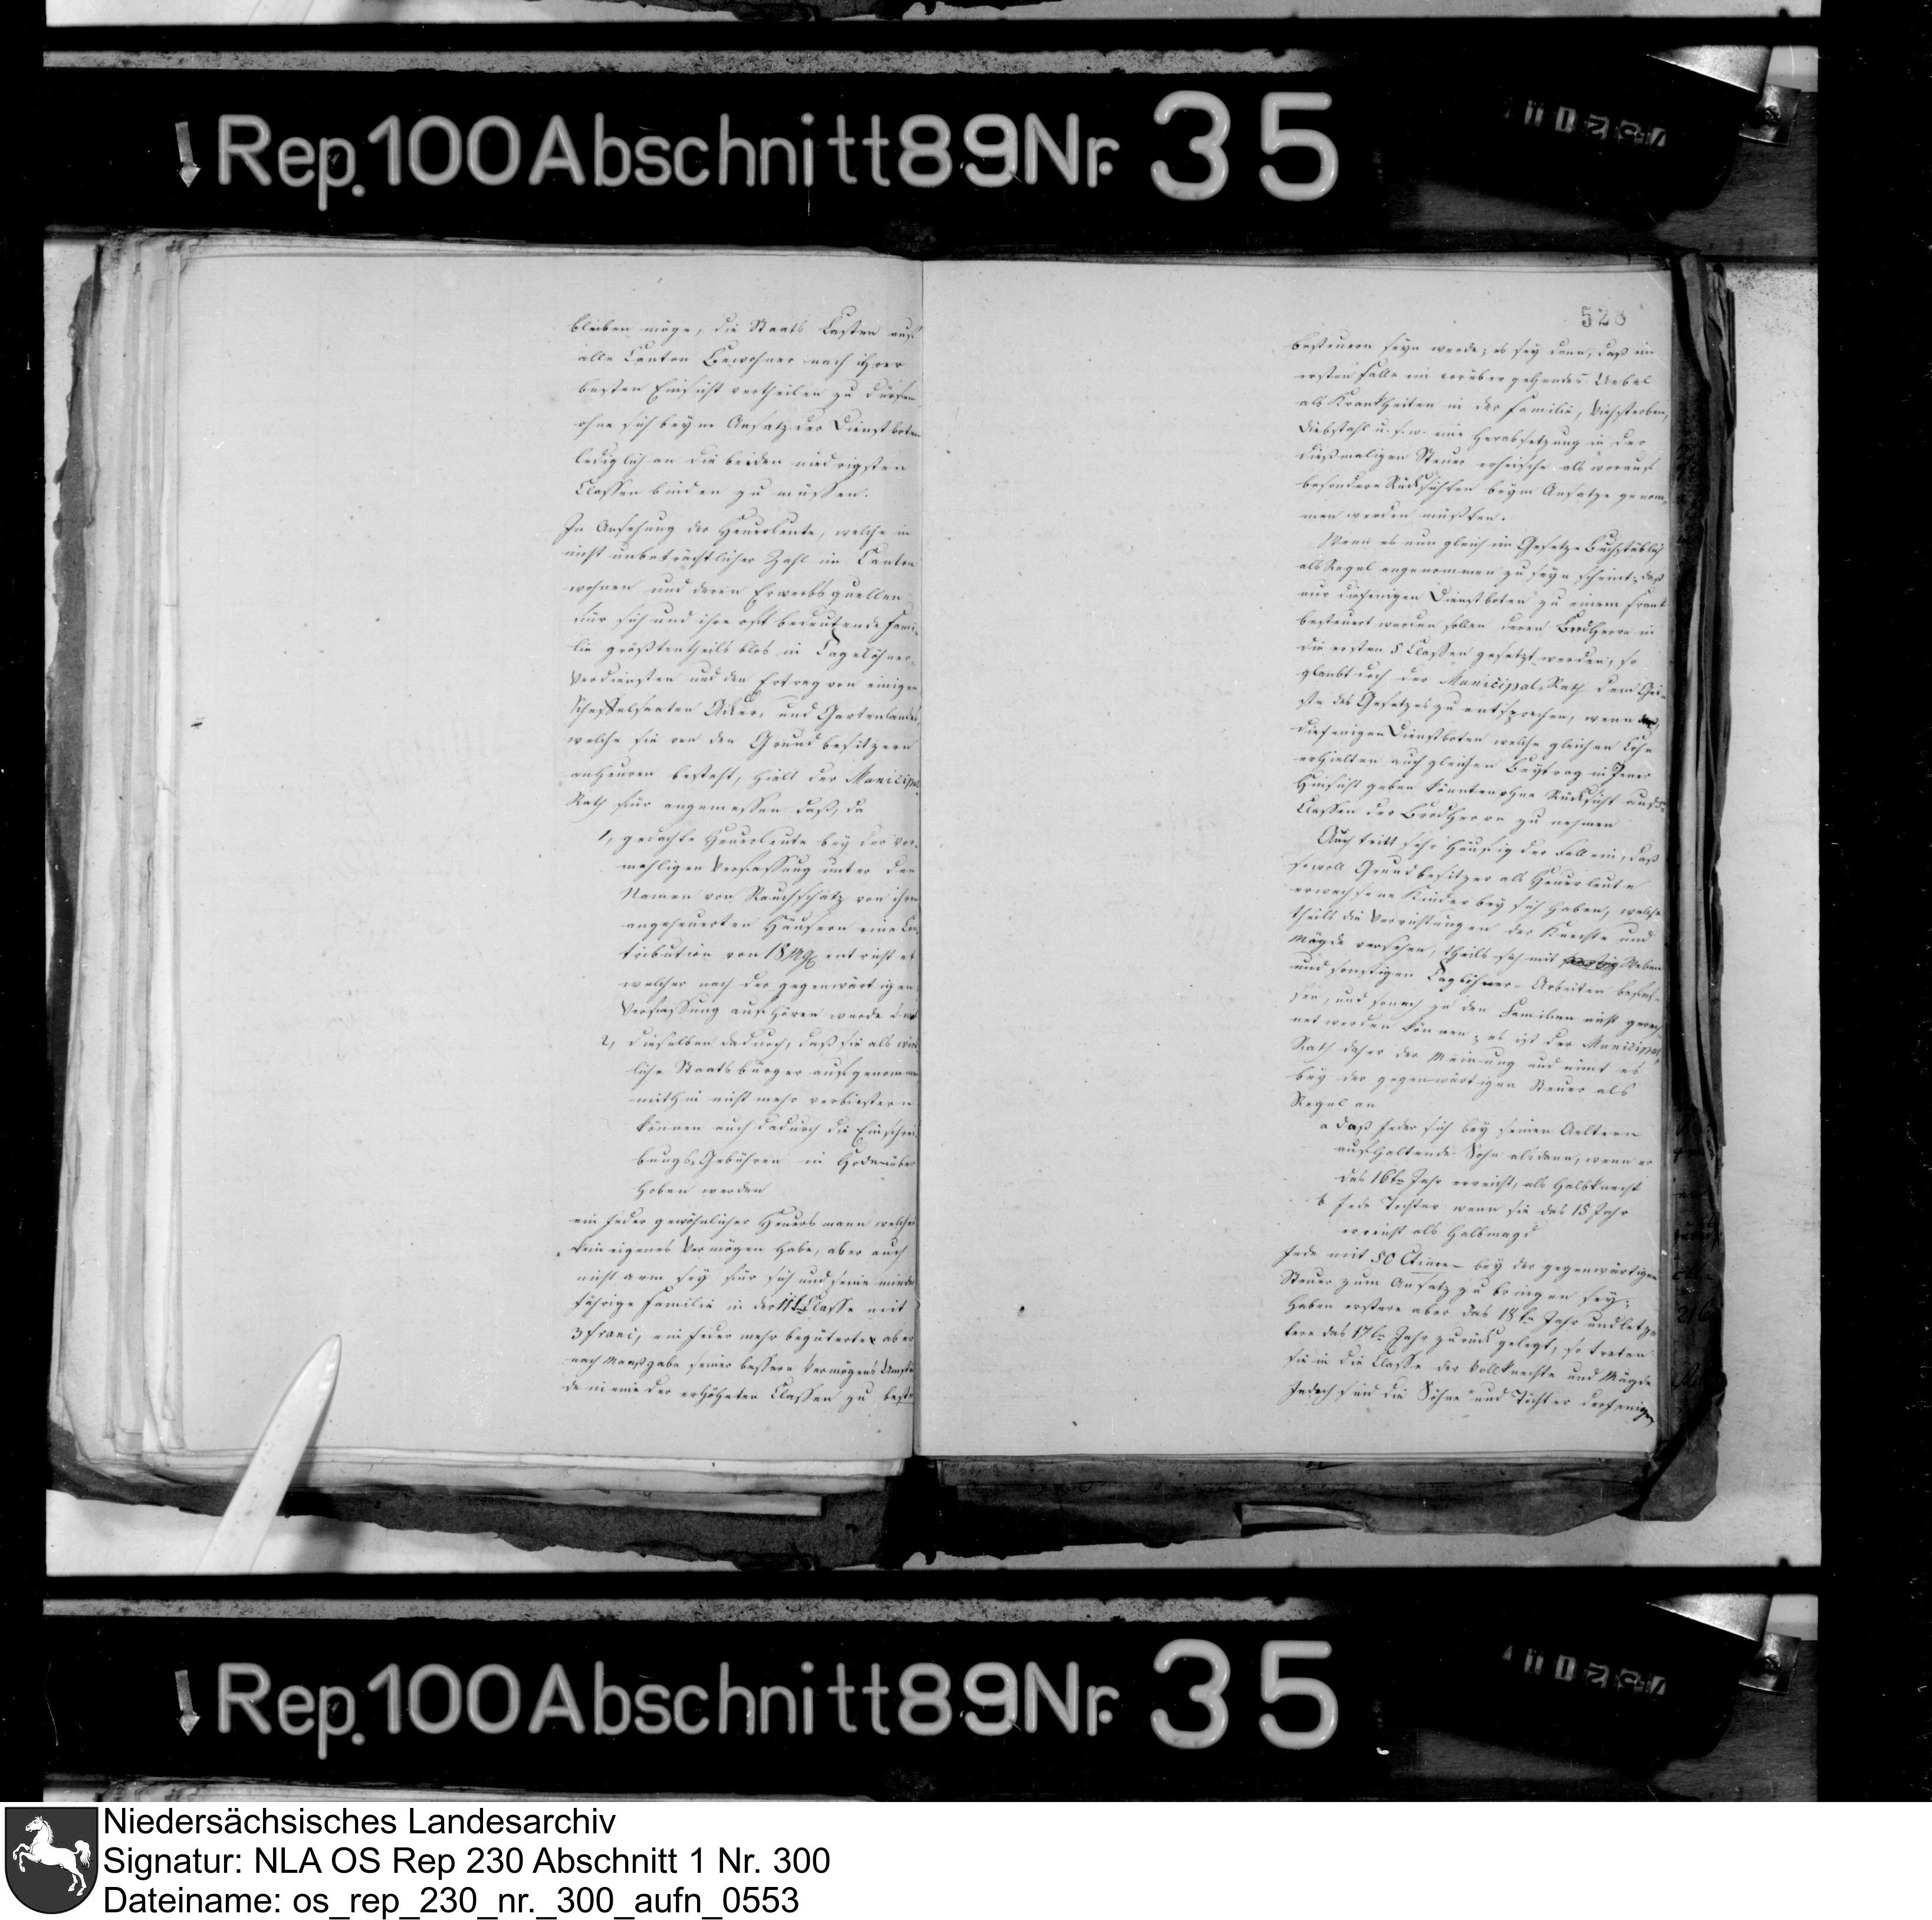 Rep. 100 Abschnitt 89 Nr. 35
bleiben möge, die Staats Lasten auf
alle Canton Bewohner nach ihrer
besten Einsicht vertheilen zu dürfen
ohne sich beym Ansatz der Dienstboten
lediglich an die beiden niedrigsten
Classen binden zu müssen.
In Ansehung der Heuerleute, welche in
nicht unbeträchtlicher Zahl im Canton
wohnen und deren Erwerbsquellen
für sich und ihre oft bedeutende Fami-
lie größtentheils blos in Tagelöhner-
Verdiensten und den Ertrag von einigen
Scheffelsaaten Acker- und Gartenlandes
welche sie von den Grundbesitzern
anheuren besteht, hielt der Municipal
Rath für angemessen daß, da
1, gedachte Heuerleute bey der vor-
mahligen Verfassung unter den
Namen von Rauchschatz von ihren
angeheuerten Häusern eine Con-
tribution von 18 mg entrichtet
welcher nach der gegenwärtigen
Verfassung aufhören werde
2, dieselben dadurch, daß sie als wirk
liche Staatsbürger aufgenommen
mithin nicht mehr verbiestern
können auch dadurch die Einschrei-
bungs-Gebühren in
hoben werden
ein jeder gewöhnlicher Heuersmann welcher
kein eigenes Vermögen habe, aber auch
nicht arm sey für sich und seine minder
jährige Familie in der 11t Classe mit
3 franc, ein jeder mehr begüterter aber
nach Maaßgabe seiner bessern Vermögens Umstän
de in eine der erhöheten Classen zu beste
528
besteuern seyn werde; es sey dann, daß im
ersten Falle ein vorübergehendes Uebel
als Krankheiten in der Familie, Viehsterben,
Diebstahl u.s.w. eine Herabsetzung in der
dießmaligen Steuer erheische als worauf
besondere Rücksichten beym Ansatze genom-
men werden müßten.
Wenn es nun gleich im Gesetze Buchstäblich
als Regel angenommen zu seyn scheint, daß
nur diejenigen Dienstboten zu einem Frank
besteuert werden sollen deren Brodherrn in
die ersten 5 Classen gesetzt werden, so
glaubt doch der Municipal-Rath dem Gei-
ste des Gesetzes zu entsprechen, wenn
diejenigen Dienstboten welche gleichen Lohn
erhielten auch gleichen Beytrag in jener
Hinsicht geben könnten ohne Rücksicht auf die
Classen der Brodherrn zu nehmen
Auch tritt sehr häufig der Fall ein, daß
sowoll Grundbesitzer als Heuerleute
erwachsene Kinder bey sich haben, welche
theils die Verrichtungen der Knechte und
Mägde versehen, theils sich mit Weben
und sonstigen Taglöhner-Arbeiten befas-
sen, und sonach zu den Familien nicht gerech-
net werden können; es ist der Municipal
Rath daher der Meinung und nimt es
bey der gegenwärtigen Steuer als
Regel an
a daß jeder sich bey seinen Aeltern
aufhaltende Sohn alsdann, wenn er
das 16te Jahr erreicht, als Halbknecht
b jede Tochter wenn sie das 15 Jahr
erreicht als Halbmagd
Jede mit 50 Ctimen bey der gegenwärtigen
Steuer zum Ansatz zu bringen sey;
haben erstere aber das 18te Jahr und letz-
tere das 17te Jahr zurück gelegt, so treten
sie in die Classe der Vollknechte und Mägde
Jedoch sind die Söhne und Töchter derjenigen
Rep. 100 Abschnitt 89 Nr. 35
Niedersächsisches Landesarchiv
Signatur: NLA OS Rep 230 Abschnitt 1 Nr. 300
Dateiname: os_rep_230_nr._300_aufn_0553